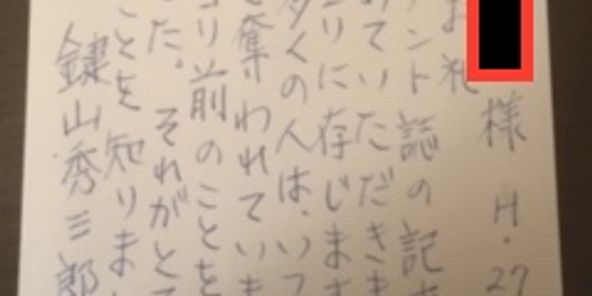 様 H.27
お礼
ント誌の記
めていただきま
りに存じま
多くの人は、いつ
奪われていま
り前のことを
た。それがと
ことを知りま
鍵山秀三郎